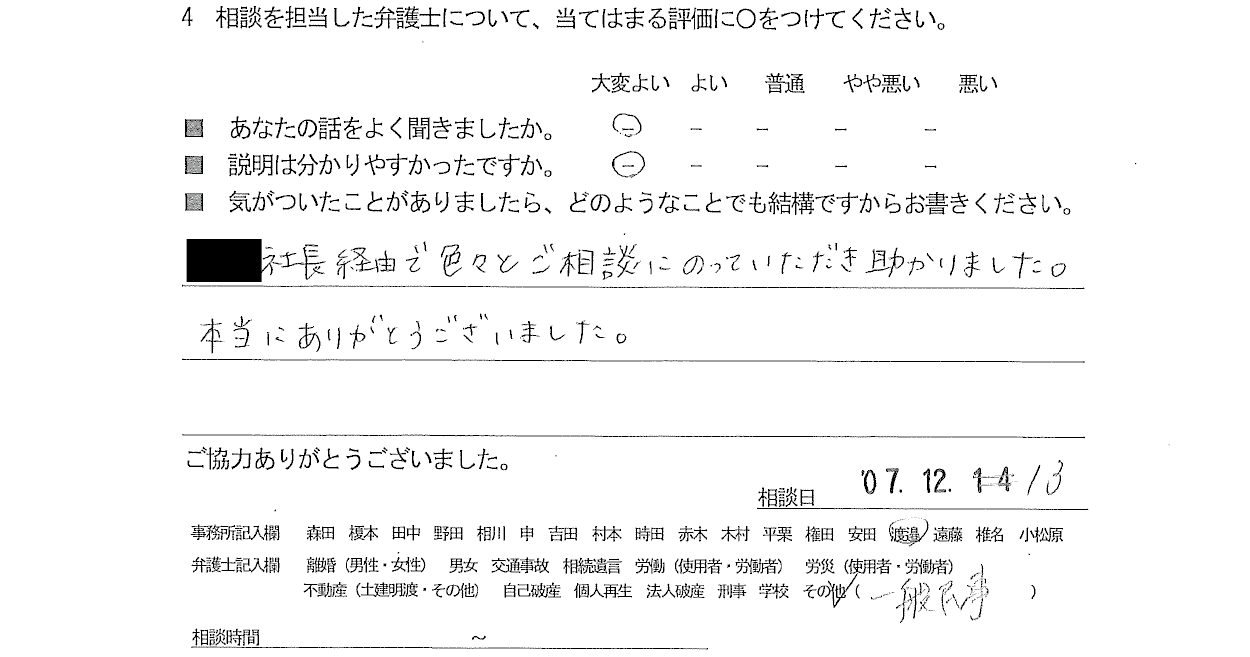 4 相談を担当した弁護士について、当てはまる評価に〇をつけてください。
大変よい よい 普通 やや悪い 悪い
■ あなたの話をよく聞きましたか。 － － － － －
■ 説明は分かりやすかったですか。 － － － － －
■ 気がついたことがありましたら、どのようなことでも結構ですからお書きください。
社長経由で色々とご相談にのっていただき助かりました。
本当にありがとうございました。
ご協力ありがとうございました。
相談日 '07.12.14 13
事務所記入欄 森田 榎本 田中 野田 相川 申 吉田 村本 時田 赤木 木村 平栗 権田 安田 渡邉 遠藤 椎名 小松原
弁護士記入欄 離婚（男性・女性） 男女 交通事故 相続遺言 労働（使用者・労働者） 労災（使用者・労働者）
不動産（土建明渡・その他） 自己破産 個人再生 法人破産 刑事 学校 その他（一般民事）
相談時間 ～